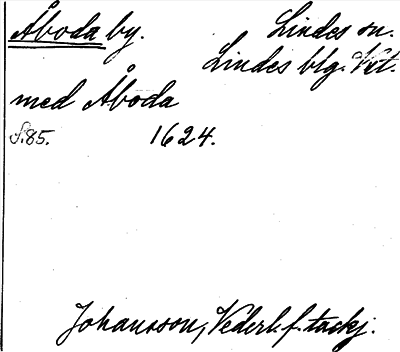 Åboda by. Lindes sn.
Lindes blg. Vst.
med Åboda
S.85. 1624.
Johansson, Vederl. f. tackj.